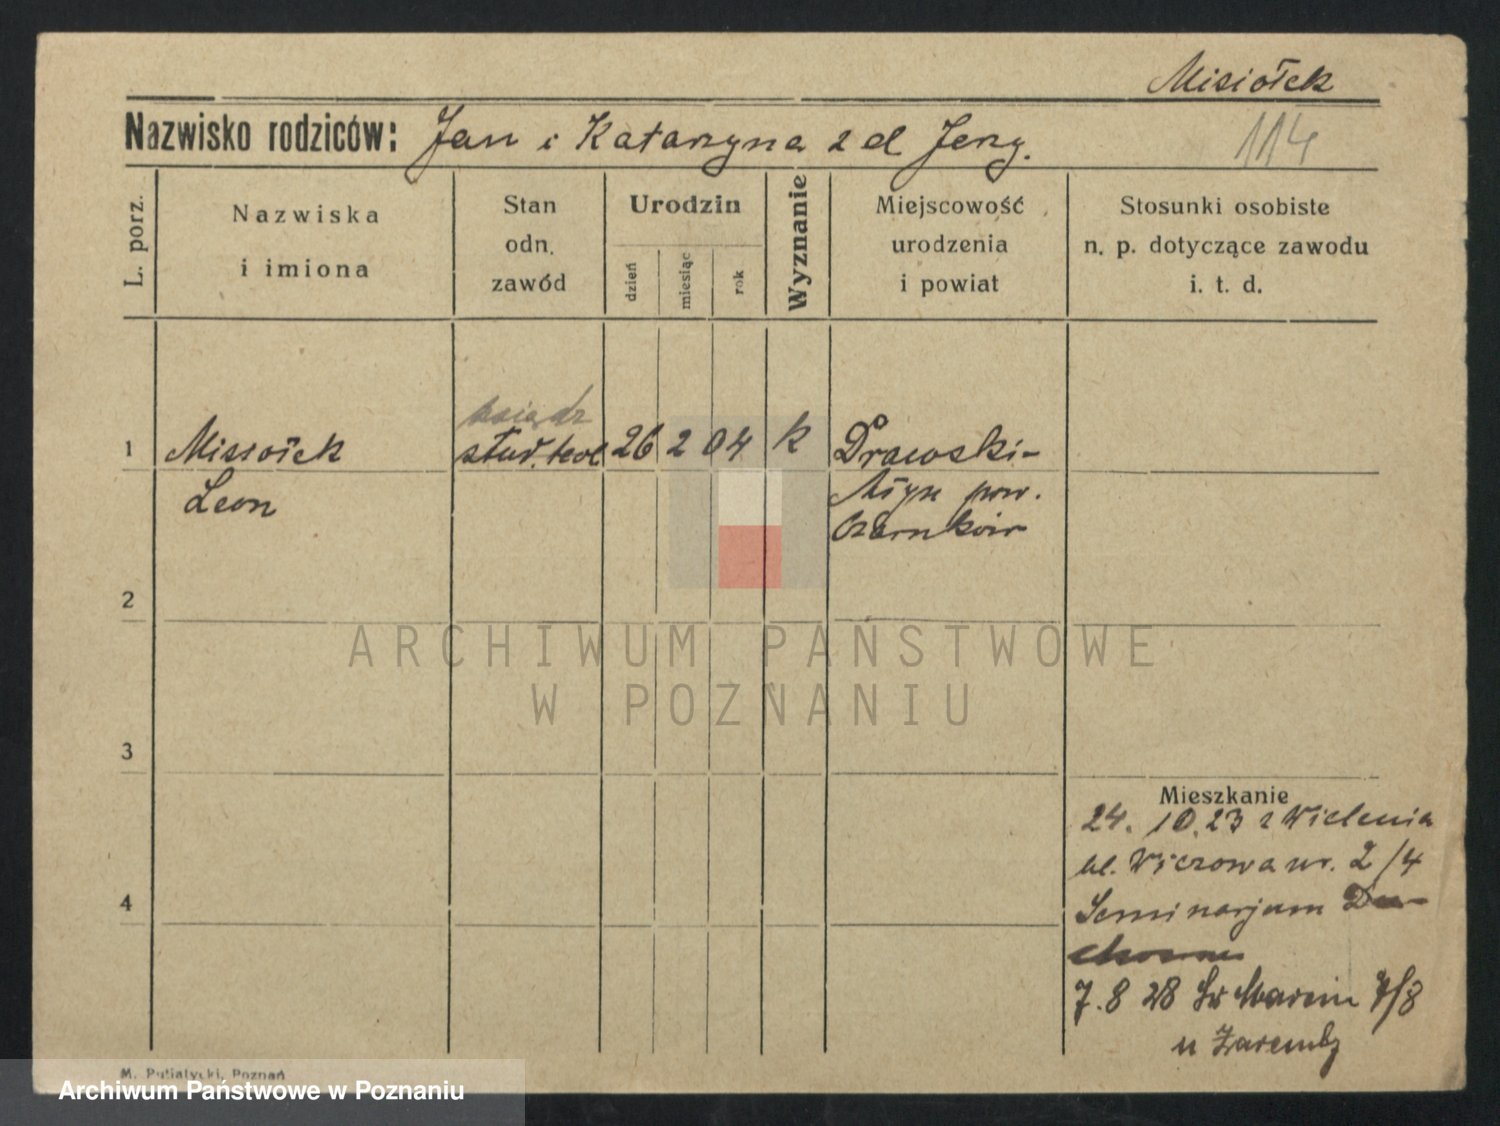 Misiołek
Nazwisko rodziców: Jan i Katarzyna z d Jerzy.
114
L. porz.
Nazwiska
i imiona
Stan
odn.
zawód
Urodzin
dzień
miesiąc
rok
Wyznanie
Miejscowość
urodzenia
i powiat
Stosunki osobiste
n. p. dotyczące zawodu
i. t. d.
ksiądz
1 Missołek stud. teol 26 2 04 k Drawski-
Leon Młyn pow.
Czarnków
2
3
Mieszkanie
24. 10. 23 z Wielenia
ul. Wieżowa nr. 2/4
4
Seminarjum Du-
chowne
7. 8 28 Św Marcin 7/8
u Zaremby
M. Putiatycki, Poznań
ARCHIWUM PAŃSTWOWE
W POZNANIU
Archiwum Państwowe w Poznaniu